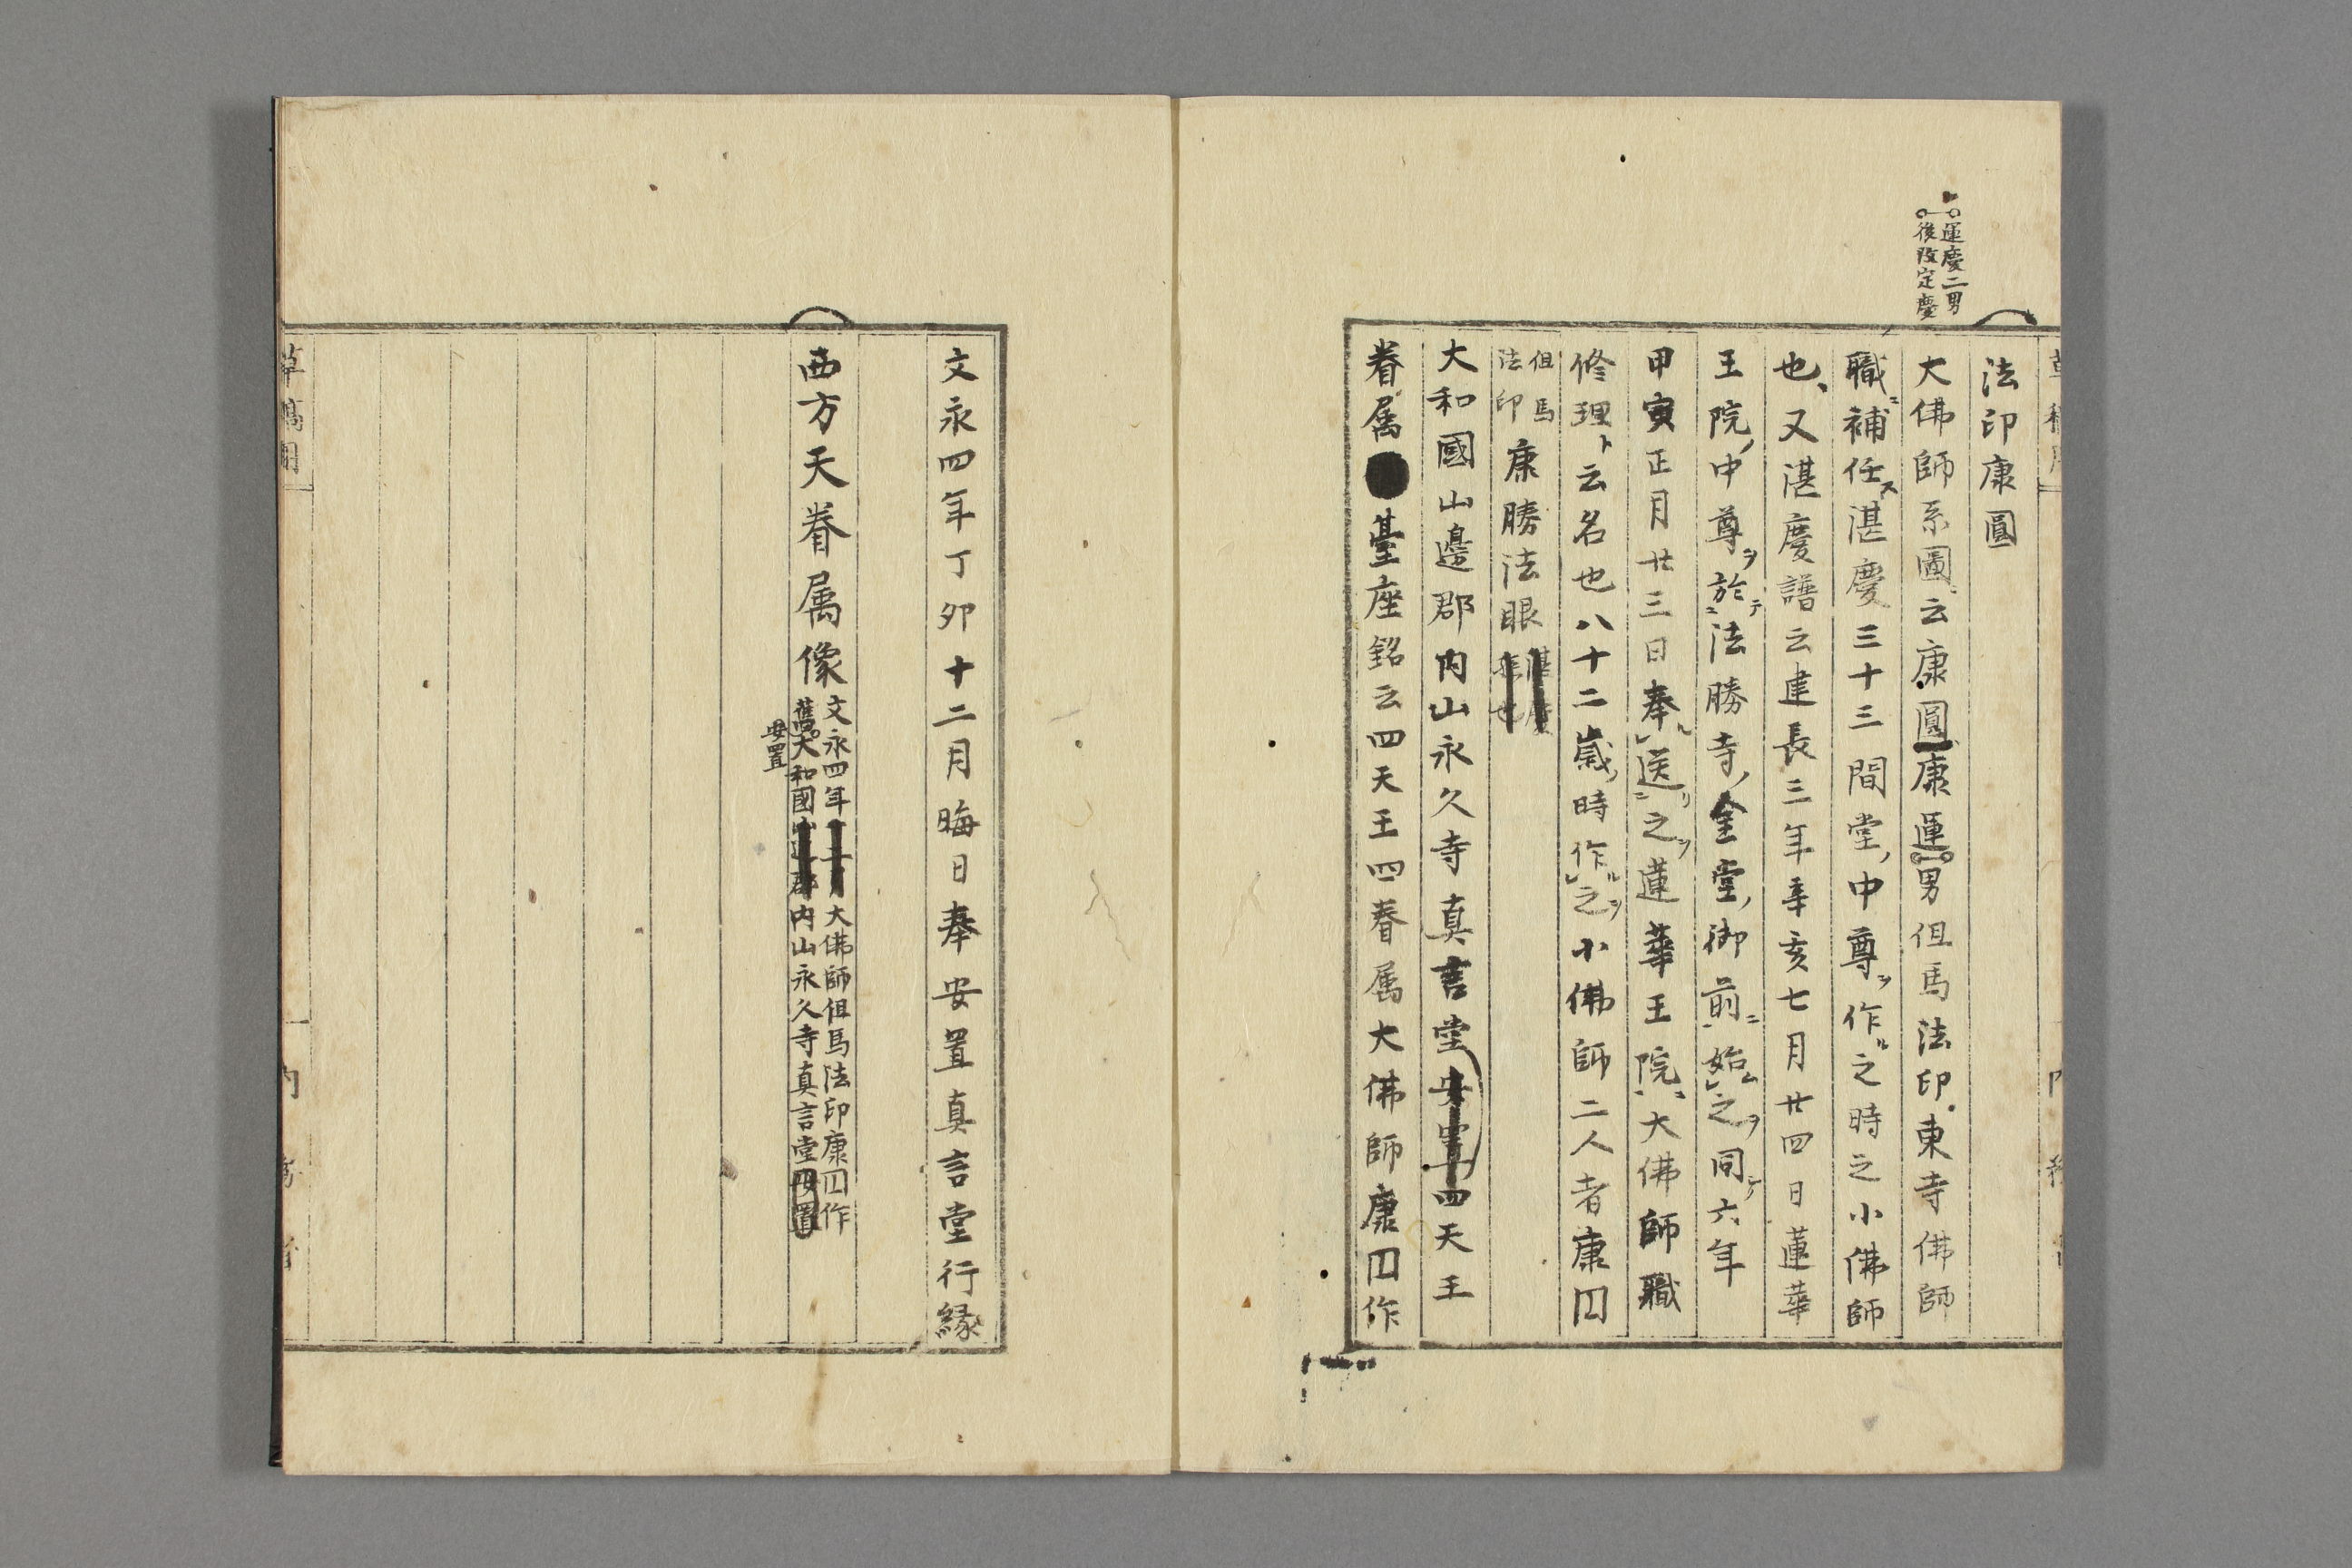 運慶二男
後改定慶
法印康圓
大佛師系圖云康圓康運男但馬法印東寺佛師
職ニ補任ス湛慶三十三間堂ノ中尊ヲ作ル之時之小佛師
也、又湛慶譜云建長三年辛亥七月廿四日蓮華
王院ノ中尊ヲ於テ法勝寺ノ金堂ノ御前ニ始ム之ヲ同テ六年
甲寅正月廿三日奉ル送リ之ヲ蓮華王院ニ大佛師職
修理ト云名也八十二歳ノ時作ル之ヲ小佛師二人者康囗
但馬
法印
康勝法眼
大和國山邊郡内山永久寺真言堂安置四天王
眷属臺座銘云四天王四眷属大佛師康囗作
文永四年丁卯十二月晦日奉安置真言堂行縁
西方天眷属像
文永四年 大佛師但馬法印康囗作
舊大和國 内山永久寺真言堂安置
安置
草稿用